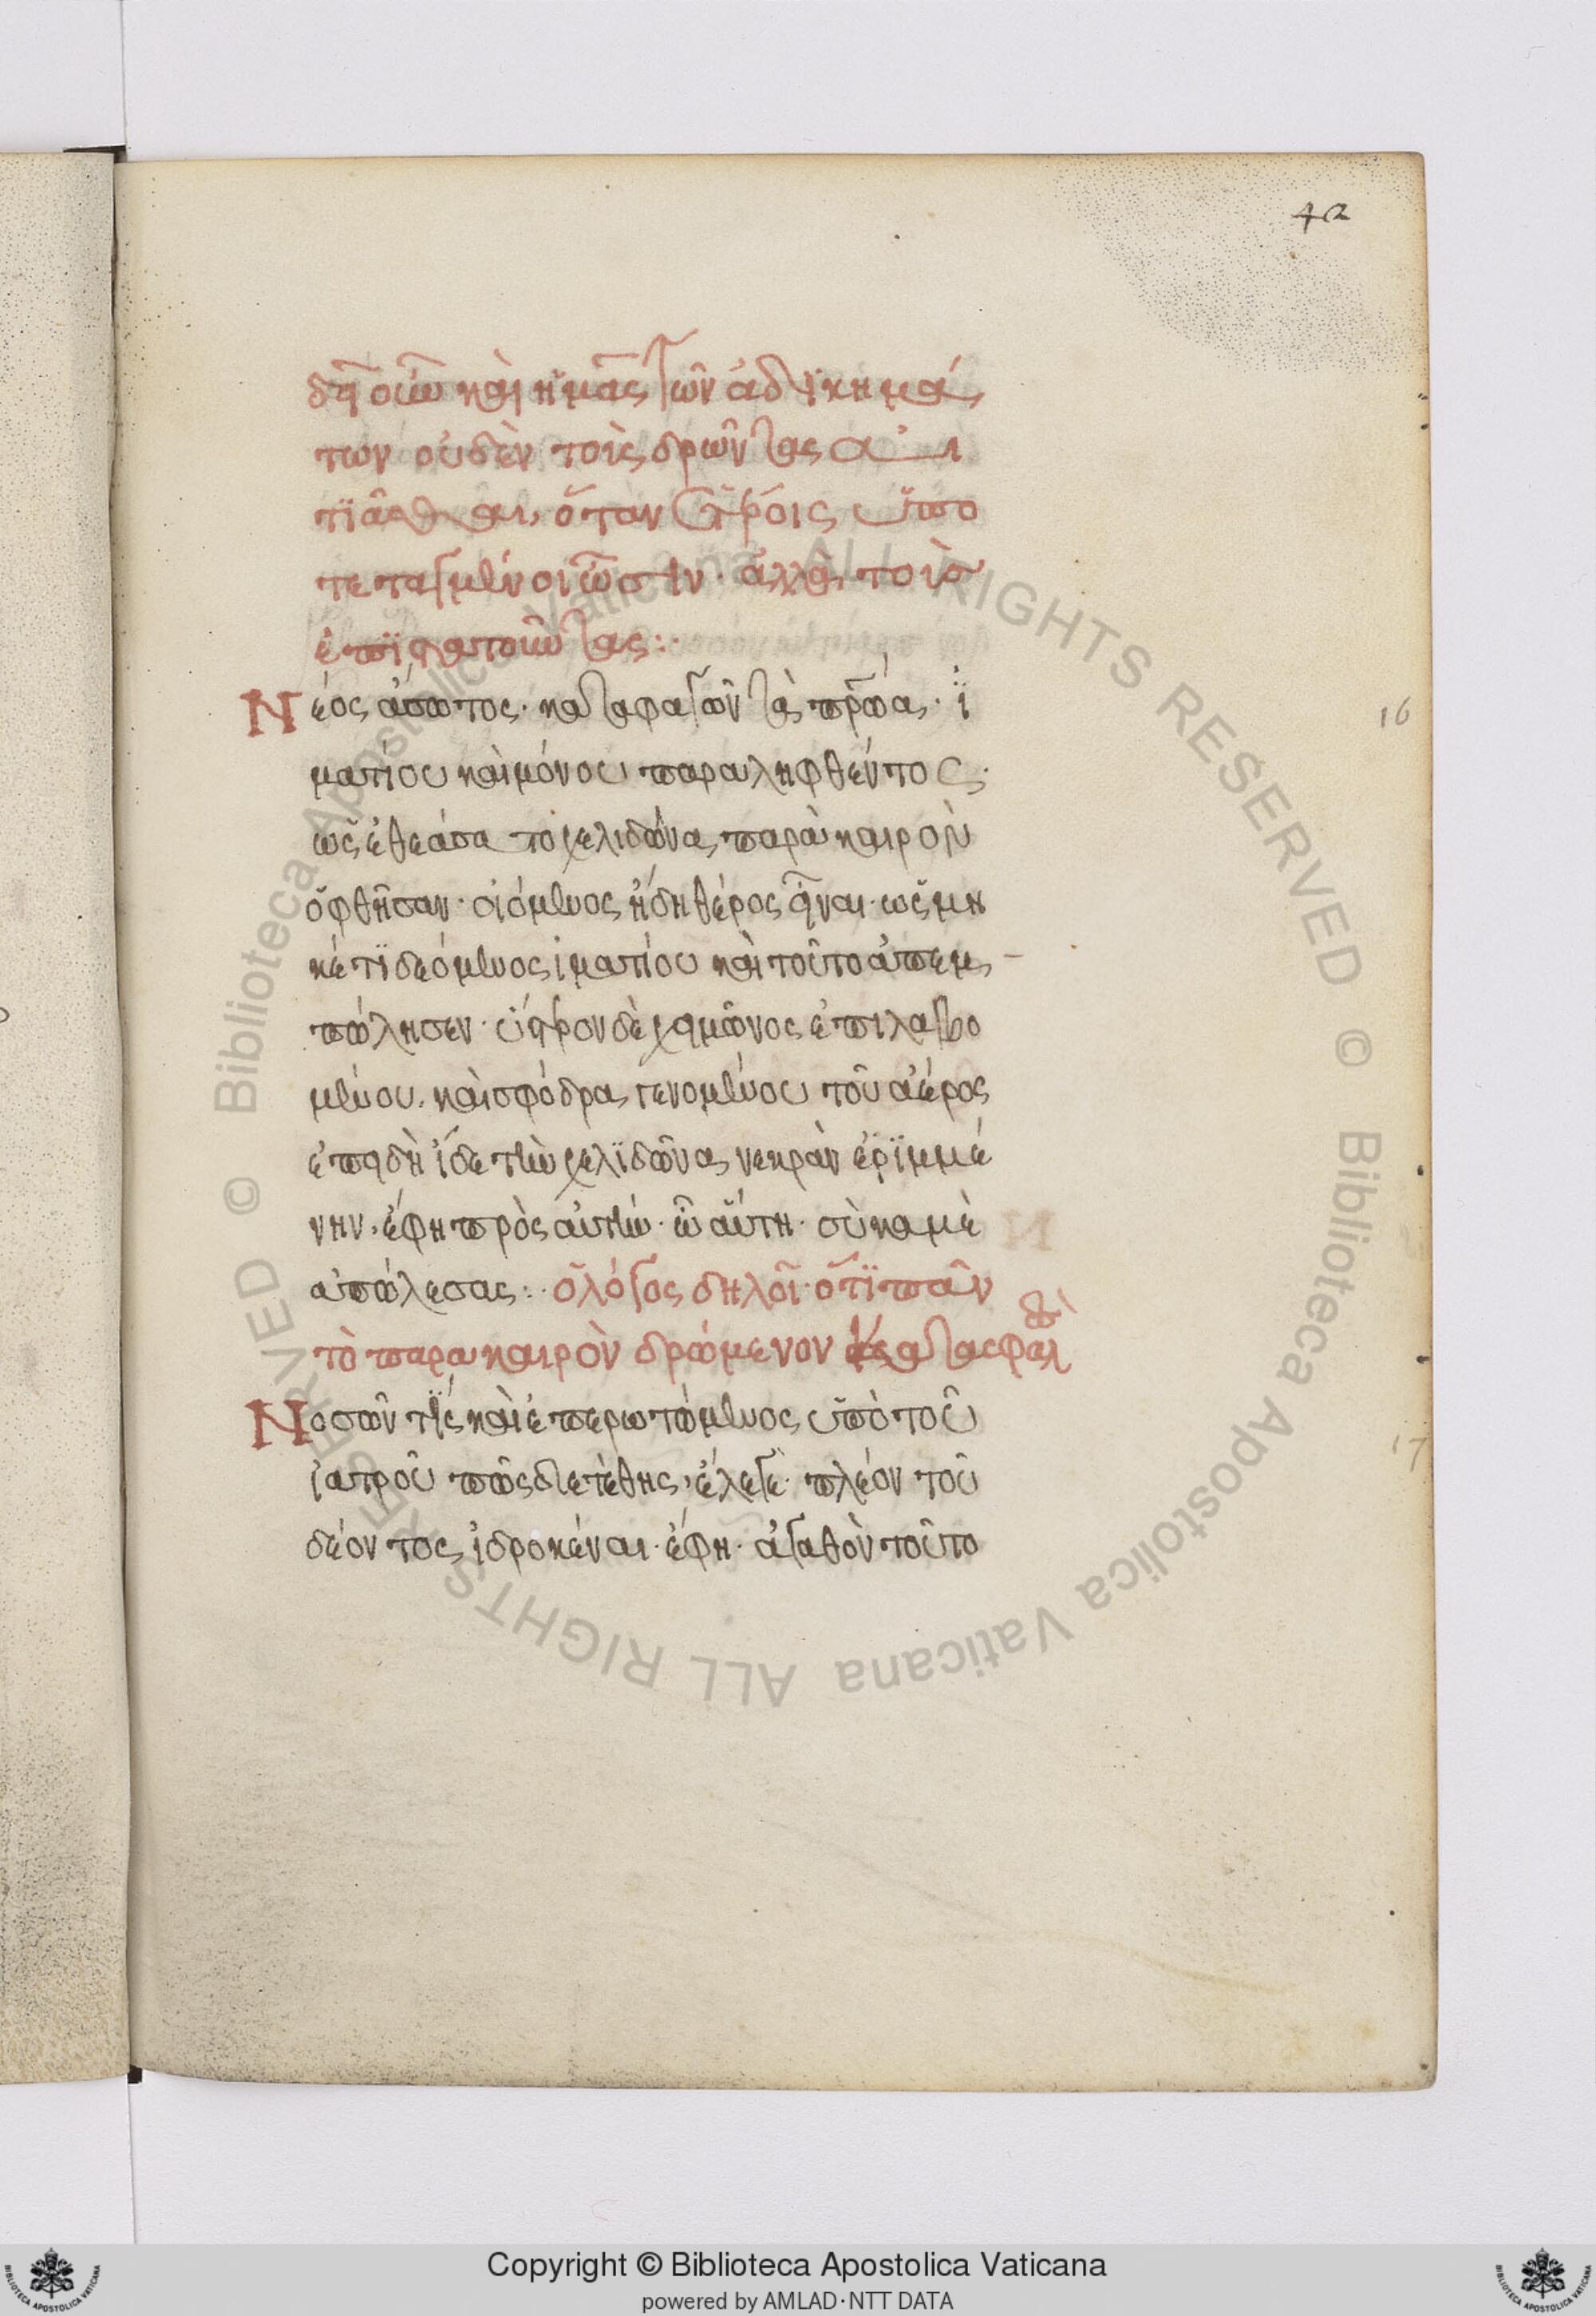 42
δεῖ οὖν καὶ ἡμᾶς τῶν ἀδικημά
των οὐδὲν τοὺς δρῶντας αἰ
τϊᾶσθαι, ὅταν ἑτέροις ὑπο
τεταγμένοι ὦσιν· ἀλλὰ τοὺσ
ἐπϊστατοῦντας:·
Νέος ἄσωτος· καταφαγῶν τὰ πατρῶα· ϊ
ματίου καὶ μόνου παραληφθέντος·
ὡς ἐθεάσατο χελιδόνα παρὰ καιρὸν
ὀφθῆσαν· οἰόμενος ἤδη θέρος εἶναι· ὡς μη
κέτϊ δεόμενος ἱματίου καὶ τοῦτο ἀπεμ
πώλησεν· ὕστερον δὲ χειμῶνος ἐπιλαβο
μένου· καὶ σφόδρα γενομένου τοῦ ἀέρος
ἐπειδὴ ἴδε τὴν χελϊδῶνα νεκρὰν ἐρϊμμέ
νην· ἔφη πρὸς αὐτήν· ὦ αὕτη· σὺ καμὲ
ἀπώλεσας:· ὁ λόγος δηλοῖ· ὅτϊ πᾶν
τὸ παρα καιρὸν δρώμενον
Νοσῶν τϊς καὶ ἐπερωτώμενος ὑπὸ τοῦ
ἰατροῦ πῶς διετέθης· ἔλεγε· πλέον τοῦ
δέοντος ἱδροκέναι· ἔφη· ἀγαθὸν τοῦτο
16
17
© Biblioteca Apostolica Vaticana ALL RIGHTS RESERVED © Biblioteca Apostolica Vaticana ALL RIGHTS RESERVED
Copyright © Biblioteca Apostolica Vaticana
powered by AMLAD·NTT DATA
BIBLIOTECA APOSTOLICA VATICANA
BIBLIOTECA APOSTOLICA VATICANA